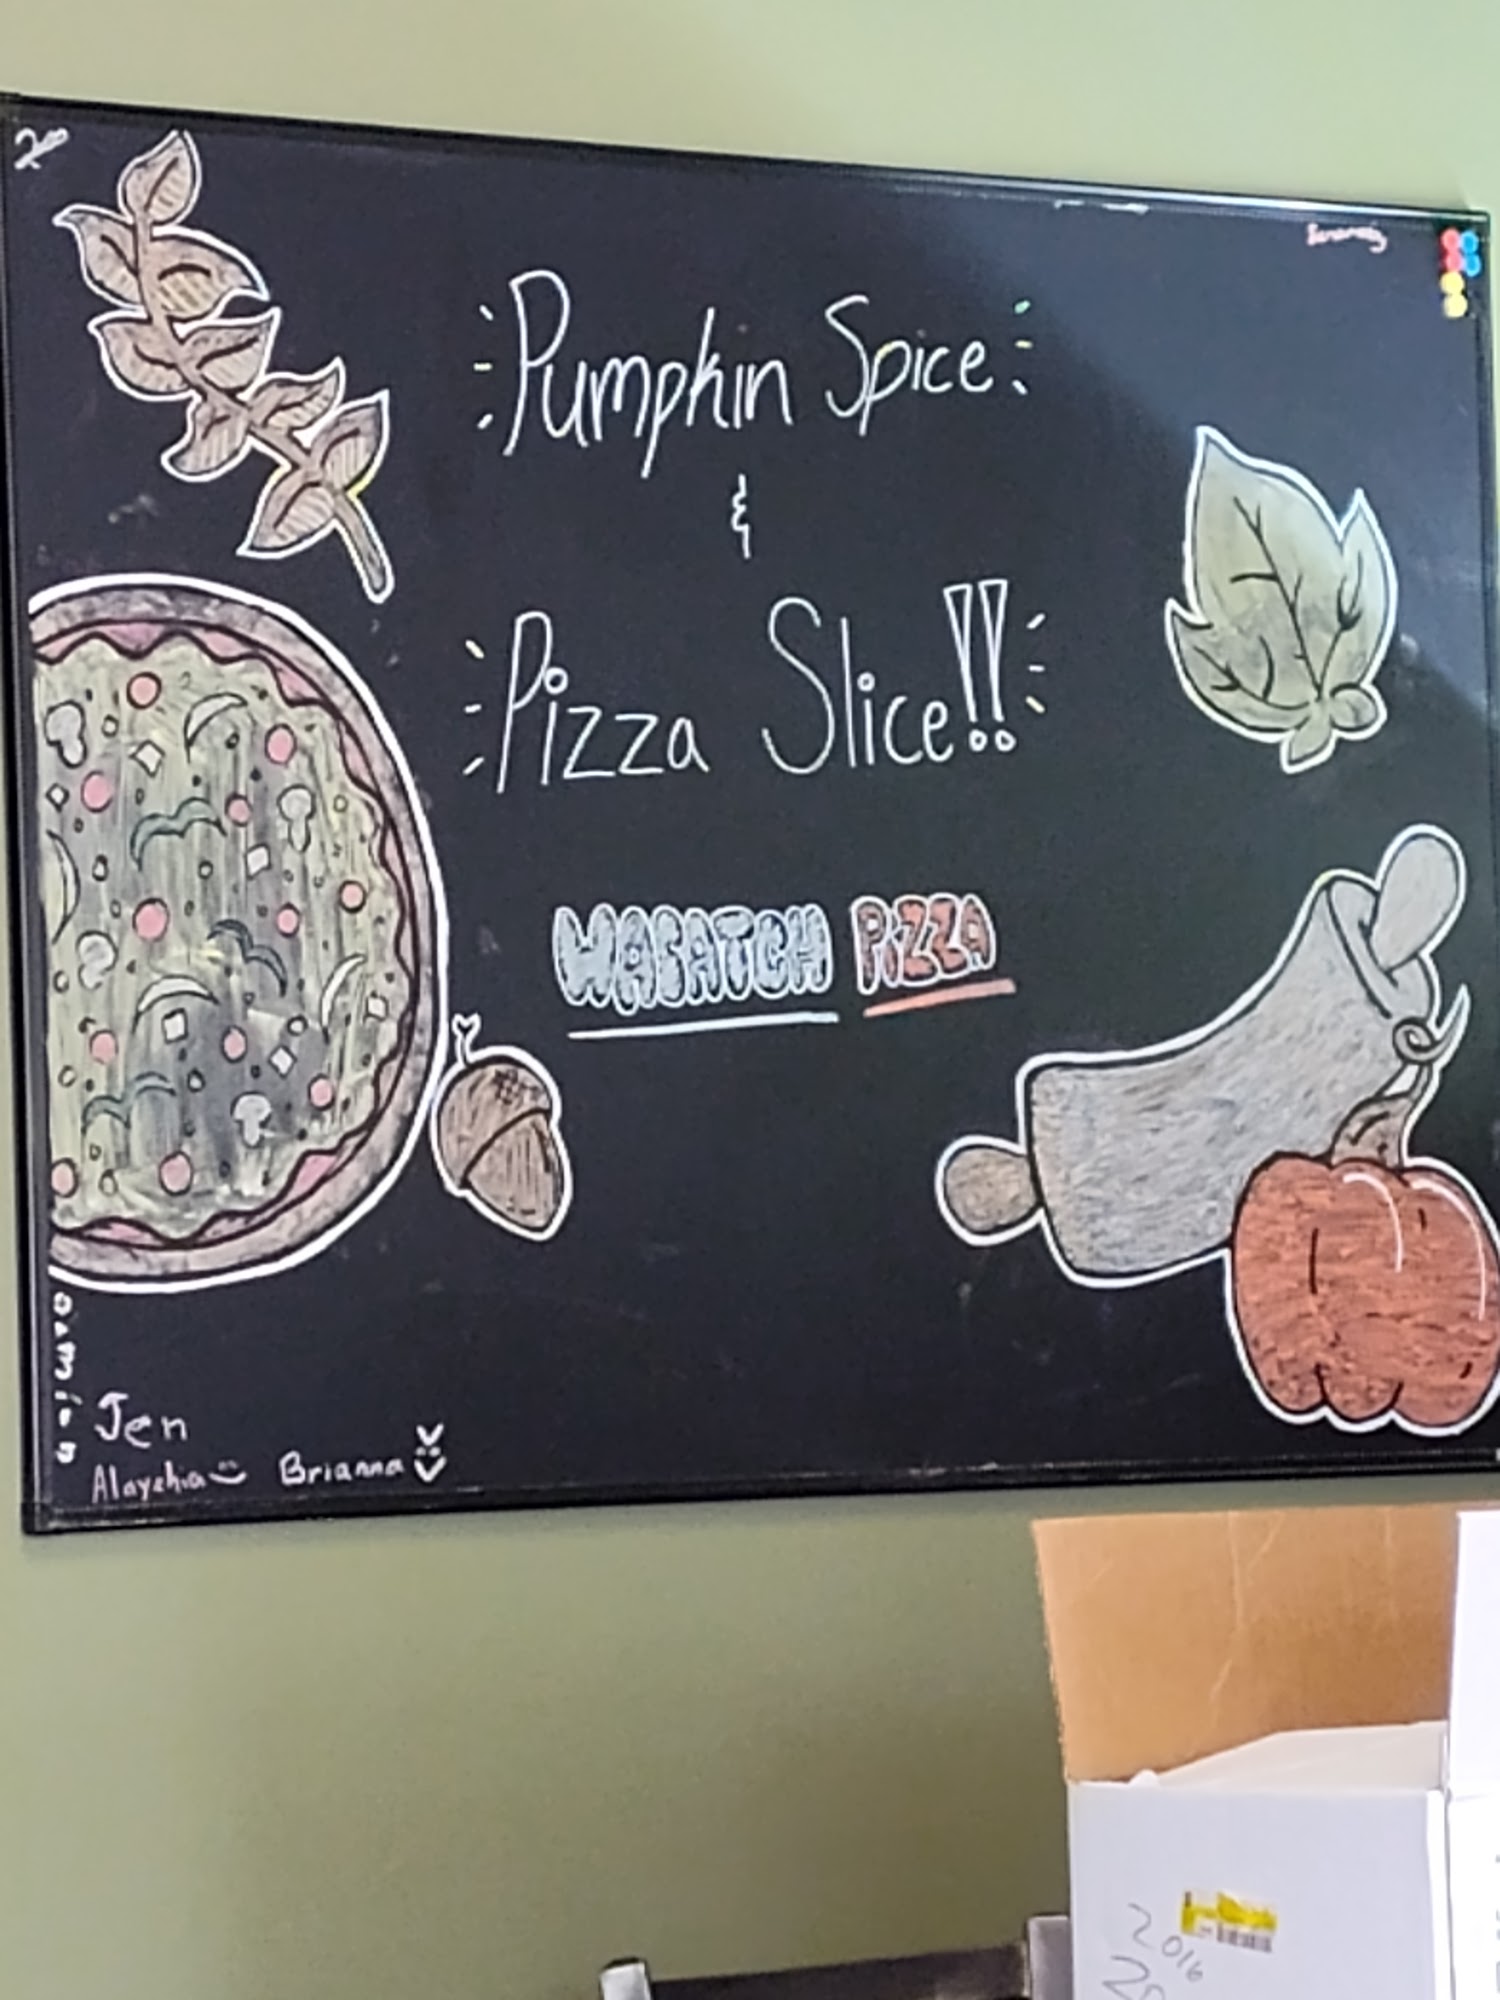 Pumpkin Spice
&
Pizza Slice!!
WASATCH PIZZA
Jen
Alaychia
Brianna
2016